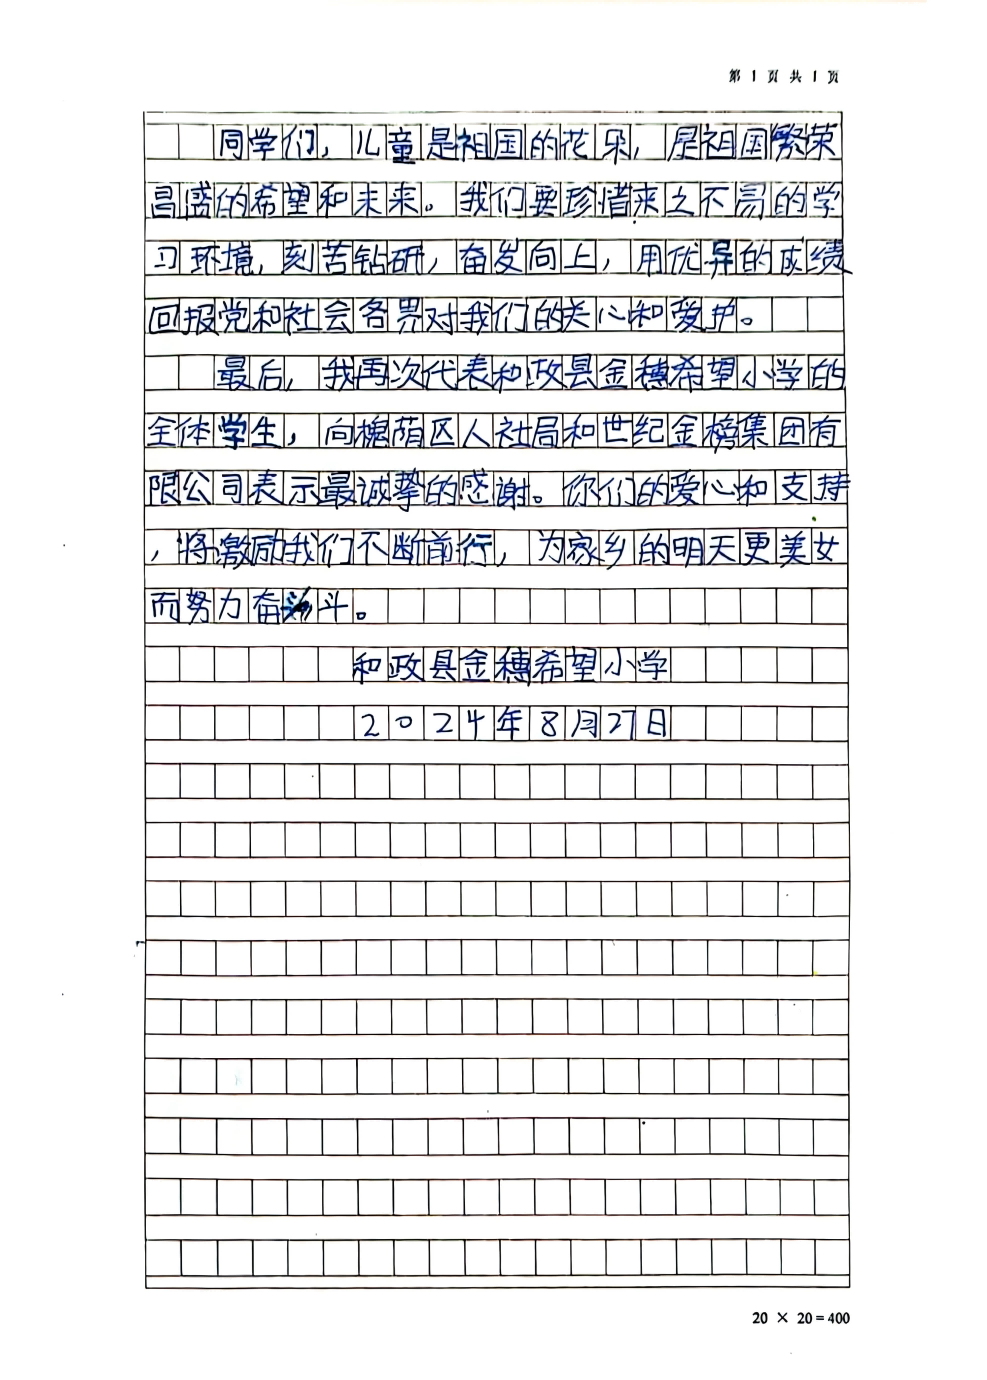 第 1 页 共 1 页
同学们，儿童是祖国的花朵，是祖国繁荣
昌盛的希望和未来。我们要珍惜来之不易的学
习环境，刻苦钻研，奋发向上，用优异的成绩
回报党和社会各界对我们的关心和爱护。
最后，我再次代表和政县金穗希望小学的
全体学生，向槐荫区人社局和世纪金榜集团有
限公司表示最诚挚的感谢。你们的爱心和支持
，将激励我们不断前行，为家乡的明天更美女
而努力奋斗。
和政县金穗希望小学
2024年8月27日
20 × 20=400